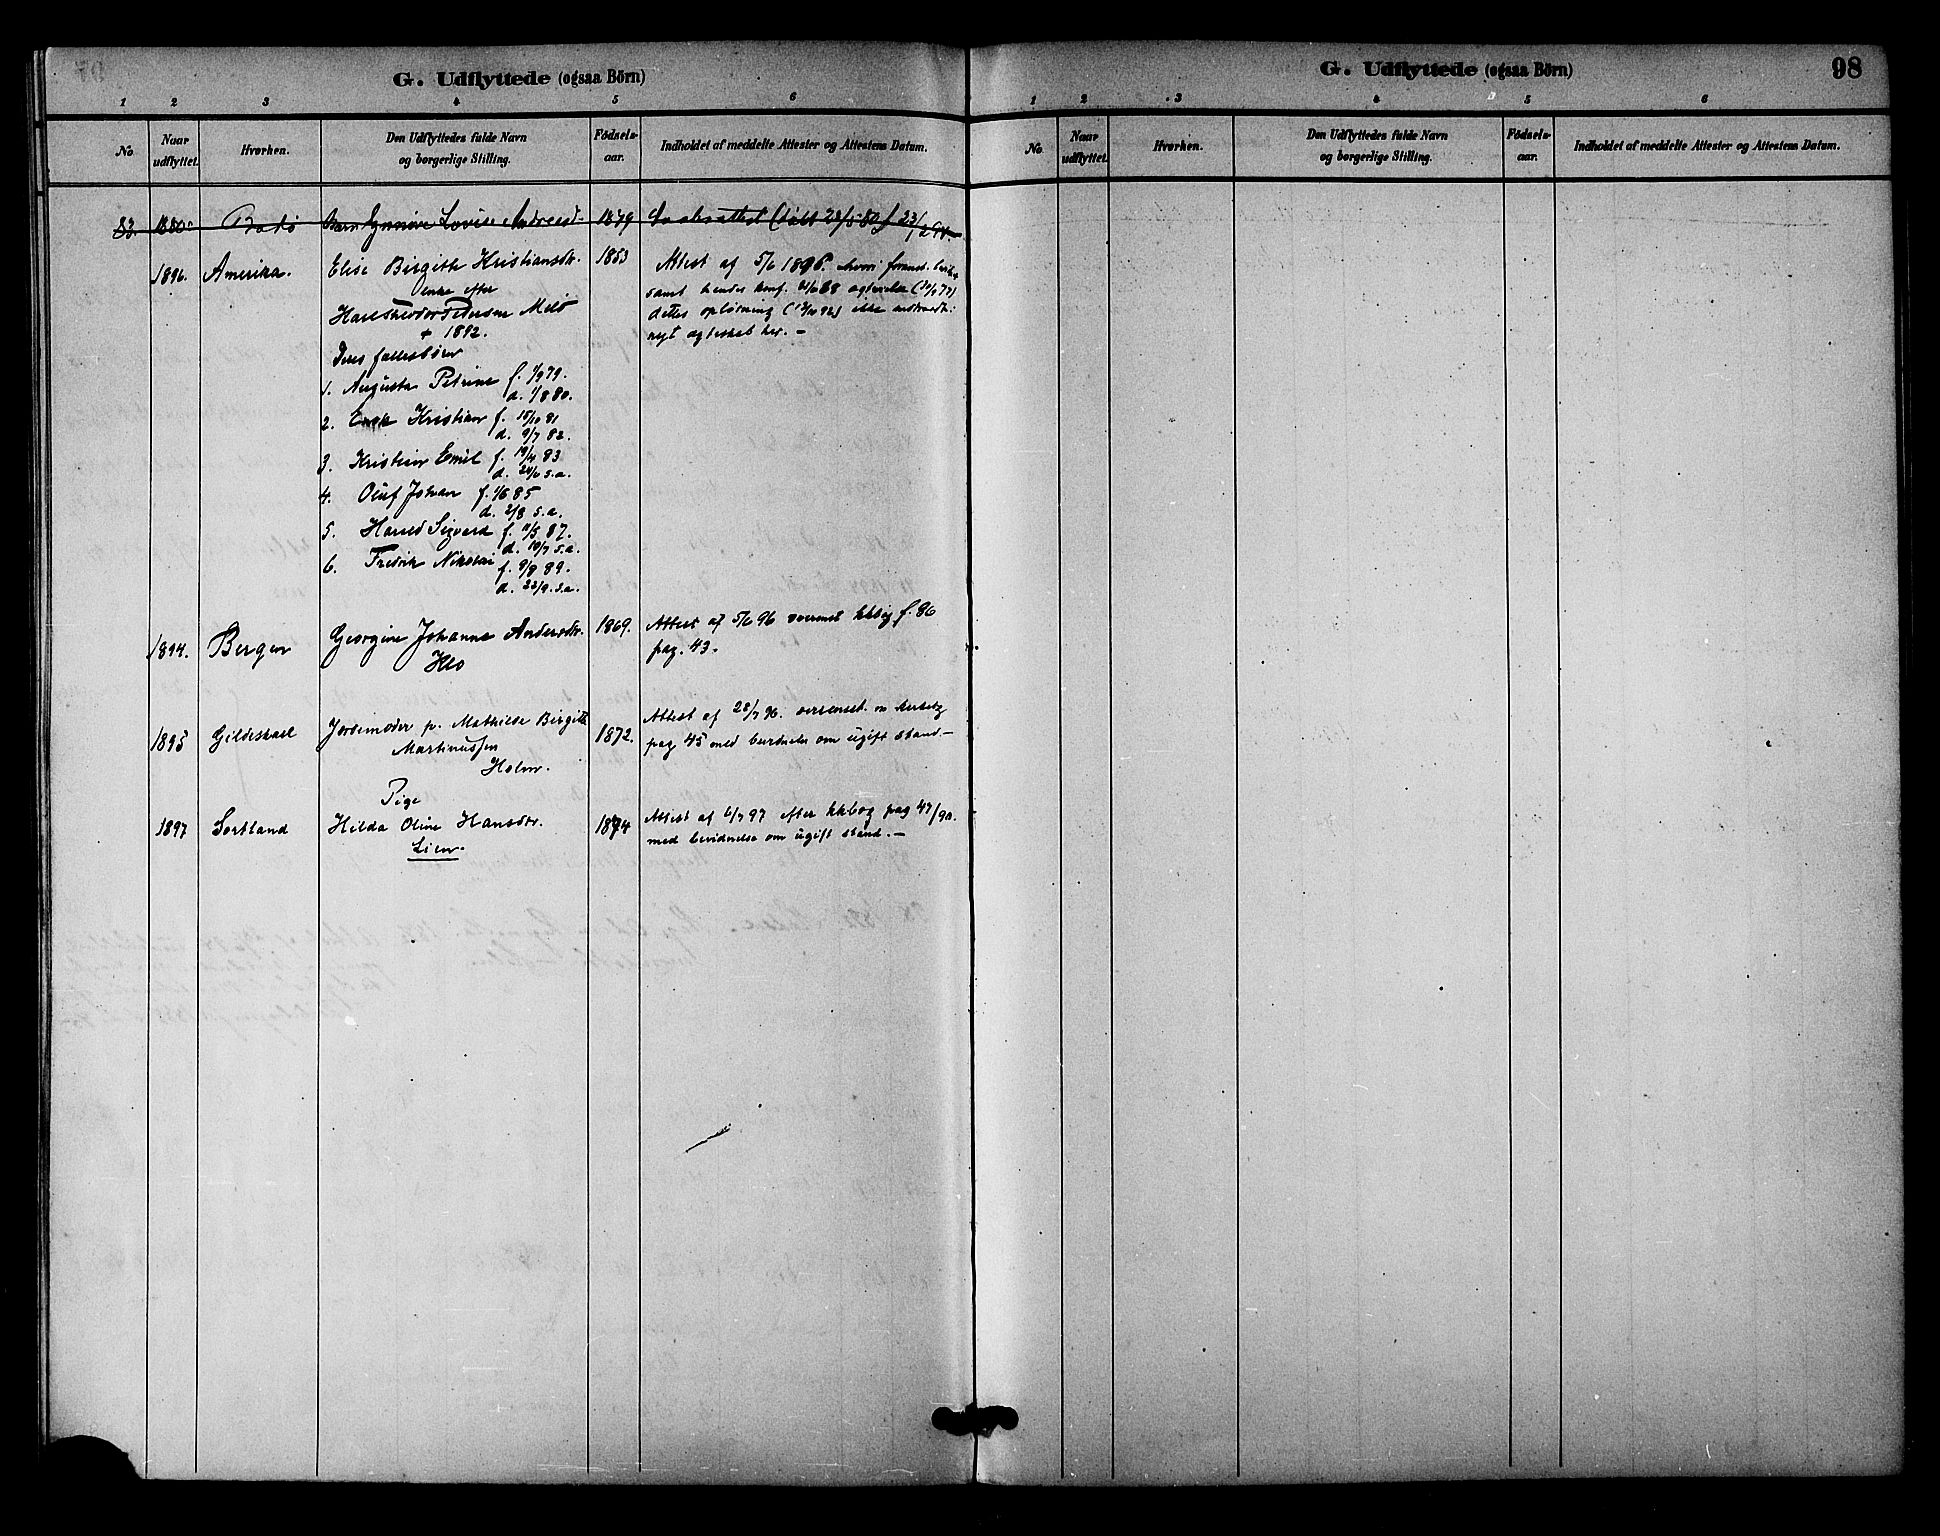 G. Udflyttede (ogsaa Börn)
1 2 3 4 5 6
No
Naar udflyttet.
Hvorhen.
Den Udflyttedes fulde Navn og borgerlige Stilling.
Födsels-aar.
Indholdet af meddelte Attester og Attestens Datum.
83. 1880 Bodö Barn Lovise Andreasd. 1879 (döbt 23/5 80) 23/1
1896. Amerika. Elise Birgithe Kristiansdtr. 1853 Attest af 5/6 1896. hvori
Enke efter
samt hendes konf.
Hans Theodor Pedersen Melö
dettes oplösning
+ 1892.
nyt ægteskab her. –
Deres fællesbörn
1. Augusta Petrine f. 1/9 79.
d. 1/8 80.
2. Kristian f. 15/10 81
d. 9/7 82.
3. Kristian Emil f. 19/4 83
d. 24/6 s.a.
4. Oluf Johan f. 1/6 85
d. 2/8 s.a.
5. Harald Sigvard f. 11/5 87.
d. 10/7 s.a.
6. Fredrik Nikolai f. 9/8 89.
d. 22/9. s.a.
1894. Bergen Georgine Johanne Andersdtr. 1869. Attest af 5/6 96 overenst. kkbog f. 86
Klo
pag. 43.
1895 Gildeskaal Jordemoder p. Mathilde Birgitte 1872. Attest af 28/7 96. overenst. m kirkebog
Martinussen
pag 45 med bevidnelse om ugift stand. –
Holm.
Pige
1897 Sortland Hilda Oline Hansdtr. 1874 Attest af 6/7 97 efter kkbog pag 47/90.
Lien.
med bevidnelse om ugift stand. –
G. Udflyttede (ogsaa Börn)
98
1 2 3 4 5 6
No
Naar udflyttet.
Hvorhen.
Den Udflyttedes fulde Navn og borgerlige Stilling.
Födsels-aar.
Indholdet af meddelte Attester og Attestens Datum.